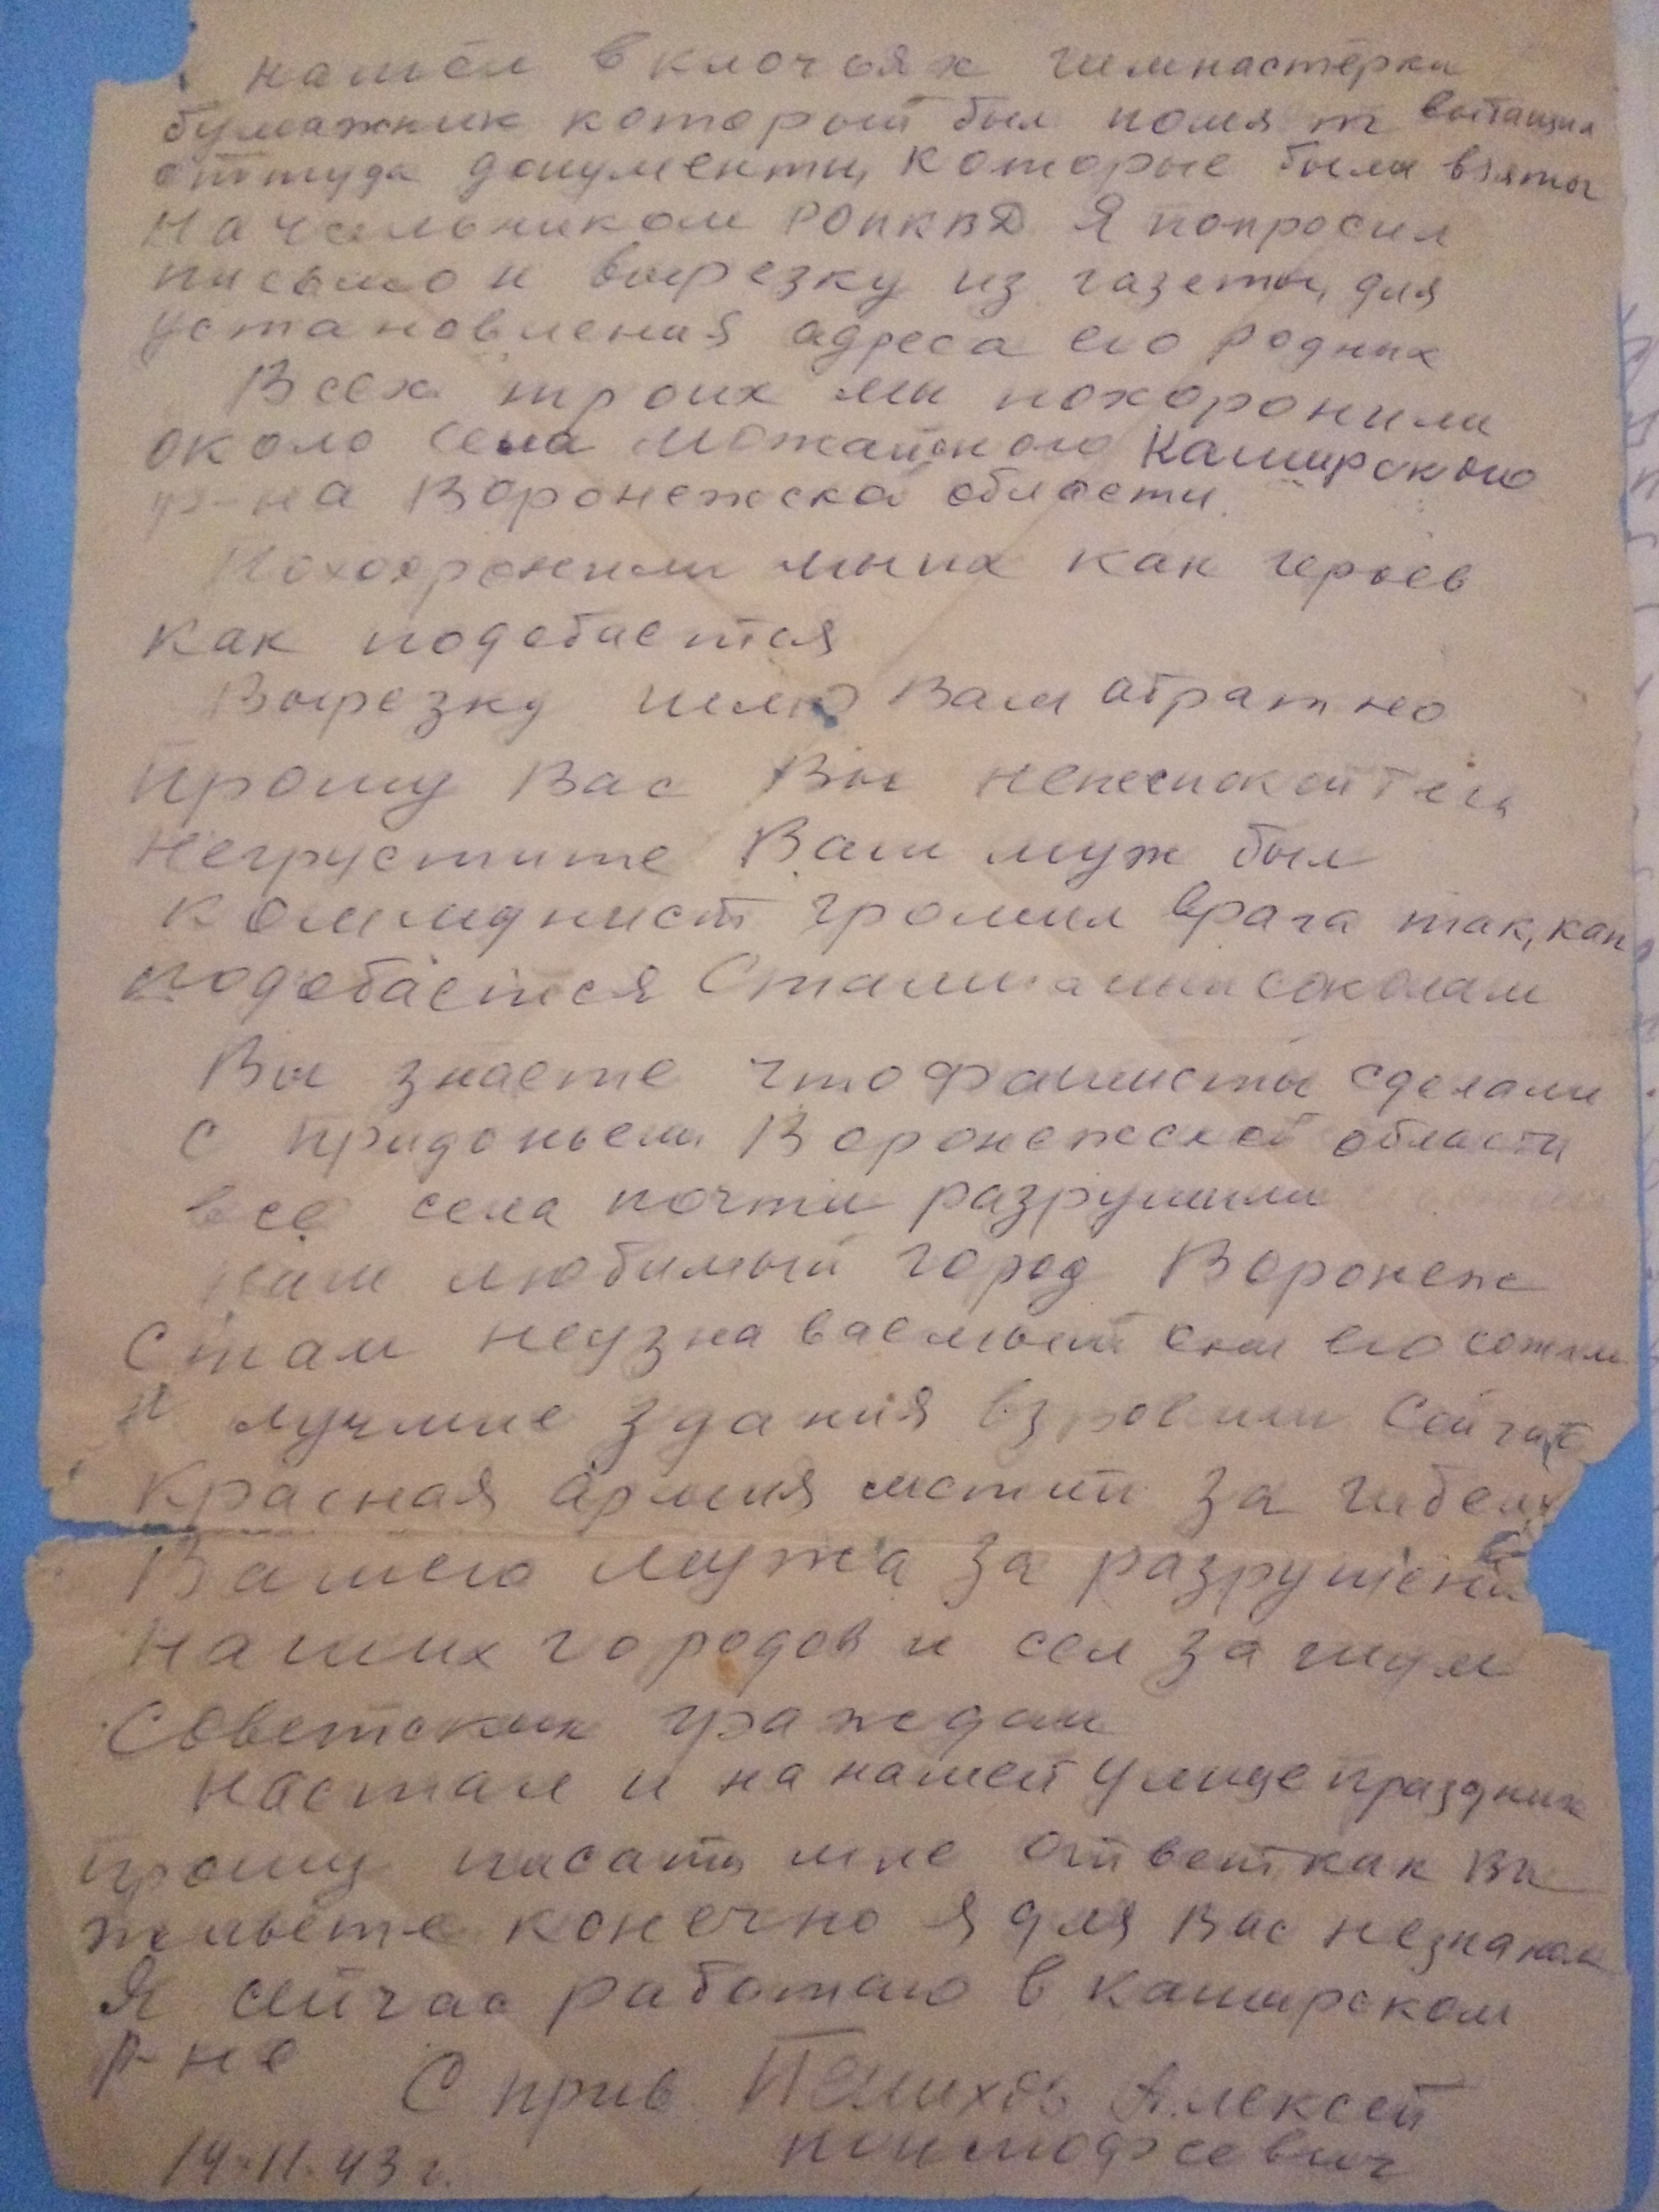 нашел в клочьях гимнастерки
бумажник который был помят вытащил
оттуда документы, которые были взяты
начальником РОНКВД Я попросил
письмо и вырезку из газеты, для
установления адреса его родных
Всех троих мы похоронили
около села Можайского Каширского
р-на Воронежской области.
Похооронили мы их как героев
как подобается
Вырезку шлю Вам обратно
Прошу Вас Вы
негрустите Ваш муж был
коммунист громил врага так, как
подобается соколам
Вы знаете что фашисты сделали
с придоньем Воронежской области
все села почти разрушили
наш любимый город Воронеж
стал неузнаваемый они его сожгли
и лучшие здания взровили Сейчас
Красная армия мстит за гибель
Вашего мужа за разрушения
наших городов и сел за
Советских граждан
настал и на нашей улице праздник
Прошу писать мне ответ как Вы
живёте конечно я для Вас незнаком
Я сейчас работаю в Каширском
р-не
С прив. Алексей
14.11.43 г.